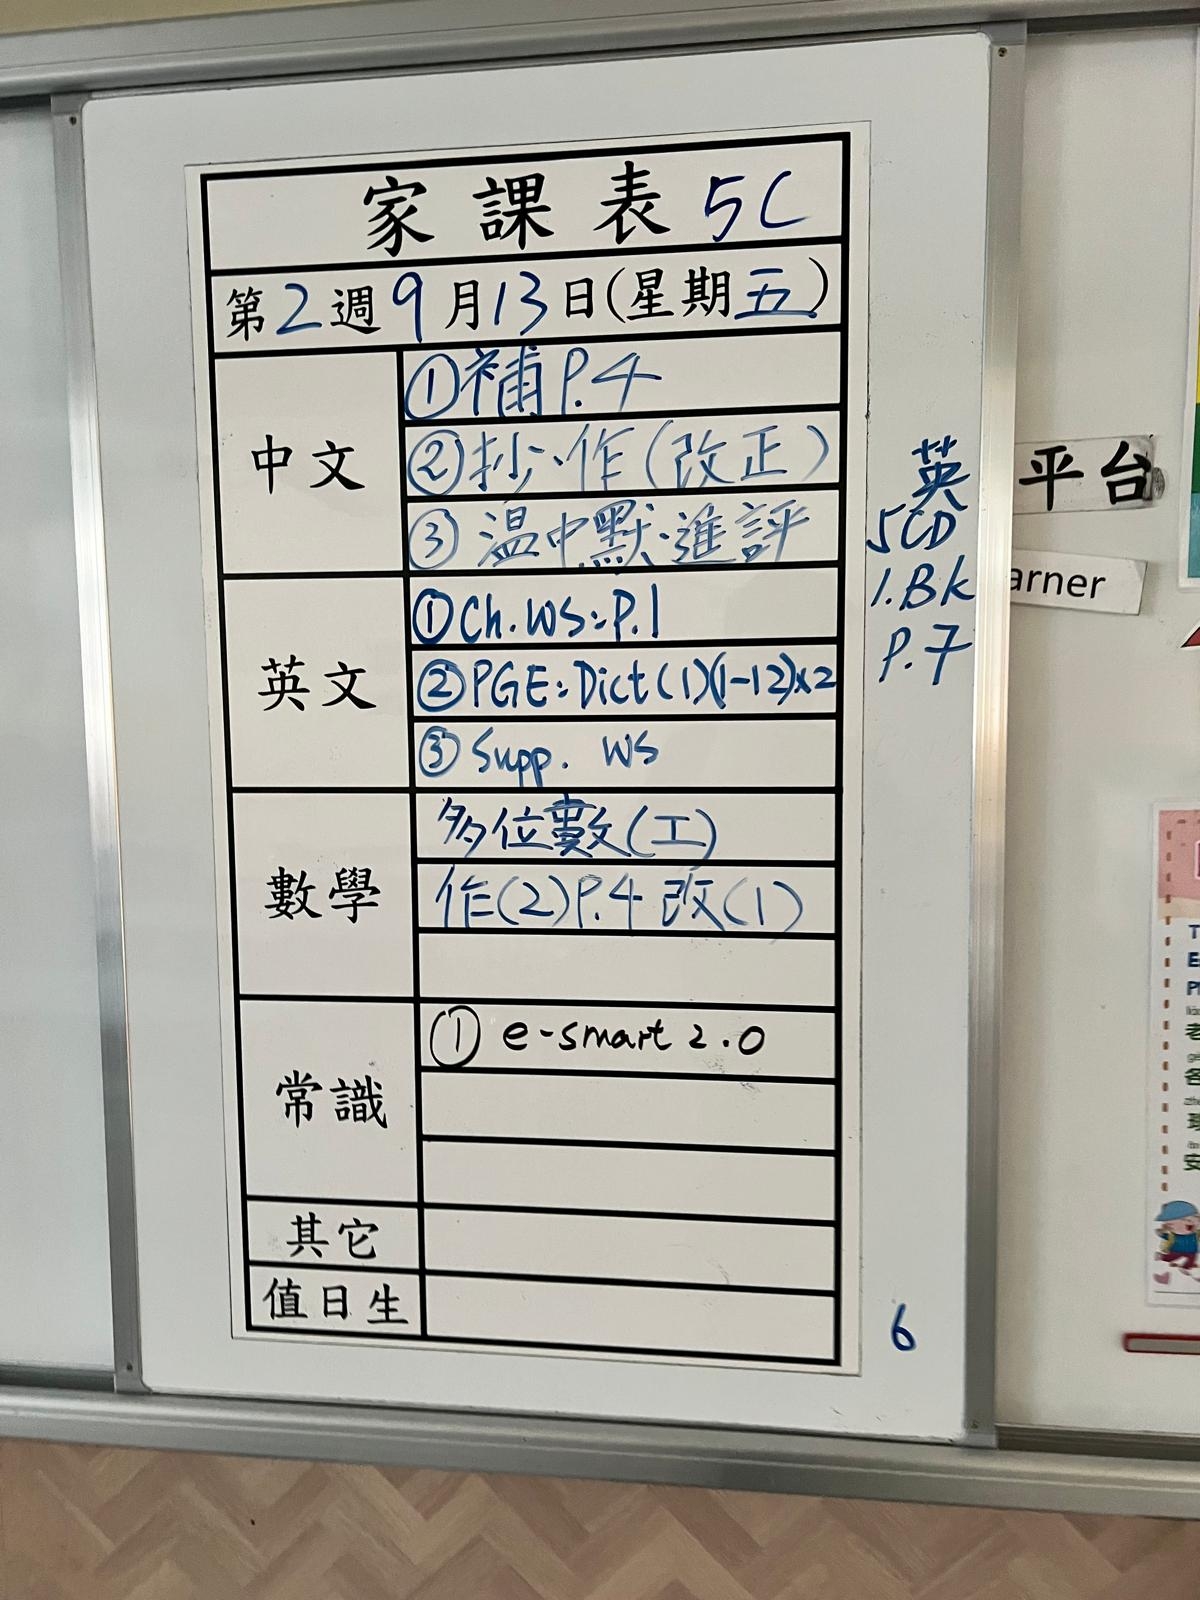 家課表 5C
第2週9月13日(星期五)
中文
①補P.4
②抄、作(改正)
③溫中默、進評
英文
①Ch.WS:P.1
②PGE:Dict(1)(1-12)x2
③Supp. WS
數學
多位數(工)
作(2)P.4 改(1)
常識
① e-smart 2.0
其它
值日生
英
5CD
1.Bk
P.7
6
平台
arner
老
各
安